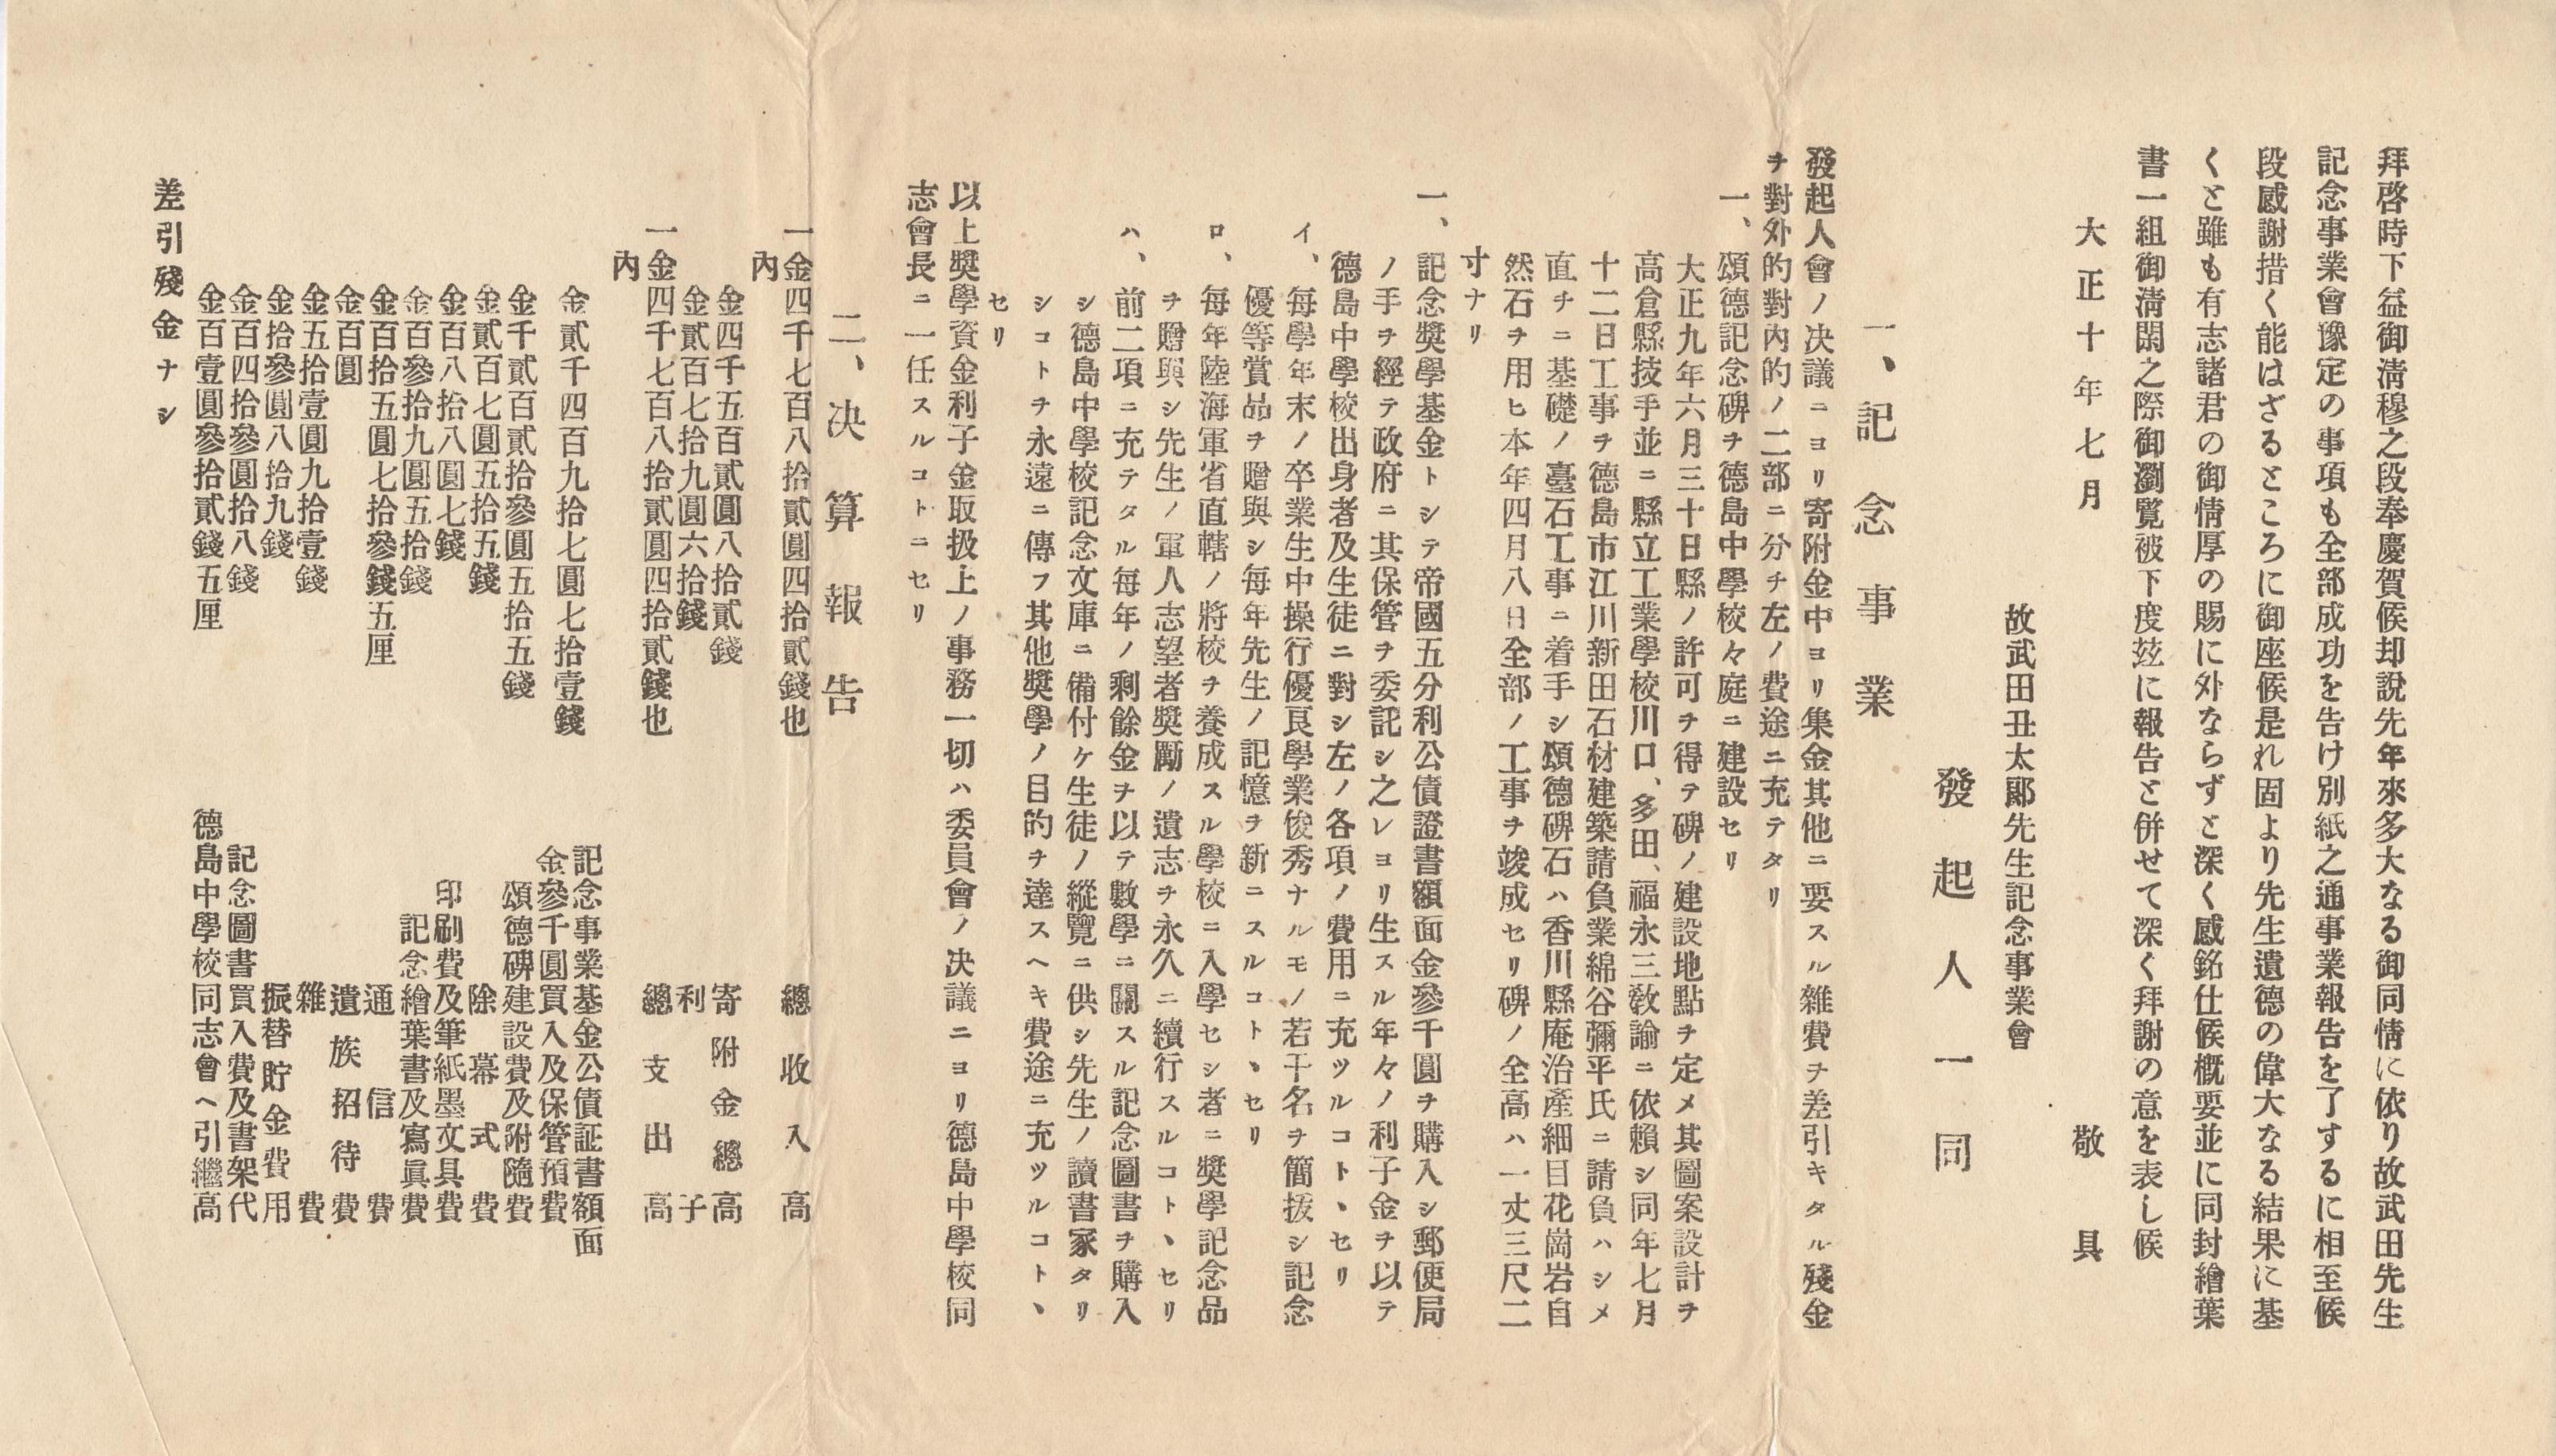 拜啓時下益御淸穆之段奉慶賀候却說先年來多大なる御同情に依り故武田先生
記念事業會豫定の事項も全部成功を告け別紙之通事業報告を了するに相至候
段感謝措く能はざるところに御座候是れ固より先生遺德の偉大なる結果に基
くと雖も有志諸君の御情厚の賜に外ならずと深く感銘仕候概要並に同封繪葉
書一組御淸閑之際御瀏覽被下度玆に報告と併せて深く拜謝の意を表し候
敬具
大正十年七月
故武田丑太郞先生記念事業會
發起人一同
一、記念事業
發起人會ノ決議ニヨリ寄附金中ヨリ集金其他ニ要スル雜費ヲ差引キタル殘金
ヲ對外的對內的ノ二部ニ分チ左ノ費途ニ充テタリ
一、頌德記念碑ヲ德島中學校々庭ニ建設セリ
大正九年六月三十日縣ノ許可ヲ得テ碑ノ建設地點ヲ定メ其圖案設計ヲ
高倉縣技手並ニ縣立工業學校川口、多田、福永三敎諭ニ依賴シ同年七月
十二日工事ヲ德島市江川新田石材建築請負業綿谷彌平氏ニ請負ハシメ
直チニ基礎ノ臺石工事ニ着手シ頌德碑石ハ香川縣庵治產細目花崗岩自
然石ヲ用ヒ本年四月八日全部ノ工事ヲ竣成セリ碑ノ全高ハ一丈三尺二
寸ナリ
一、記念獎學基金トシテ帝國五分利公債證書額面金參千圓ヲ購入シ郵便局
ノ手ヲ經テ政府ニ其保管ヲ委託シ之レヨリ生スル年々ノ利子金ヲ以テ
德島中學校出身者及生徒ニ對シ左ノ各項ノ費用ニ充ツルコトヽセリ
イ、每學年末ノ卒業生中操行優良學業俊秀ナルモノ若干名ヲ簡拔シ記念
優等賞品ヲ贈與シ每年先生ノ記憶ヲ新ニスルコトヽセリ
ロ、每年陸海軍省直轄ノ將校ヲ養成スル學校ニ入學セシ者ニ獎學記念品
ヲ贈與シ先生ノ軍人志望者獎勵ノ遺志ヲ永久ニ續行スルコトヽセリ
ハ、前二項ニ充テタル每年ノ剩餘金ヲ以テ數學ニ關スル記念圖書ヲ購入
シ德島中學校記念文庫ニ備付ケ生徒ノ縱覽ニ供シ先生ノ讀書家タリ
シコトヲ永遠ニ傳フ其他獎學ノ目的ヲ達スヘキ費途ニ充ツルコトヽ
セリ
以上獎學資金利子金取扱上ノ事務一切ハ委員會ノ決議ニヨリ德島中學校同
志會長ニ一任スルコトニセリ
二、決算報告
一金四千七百八拾貳圓四拾貳錢也 總收入高
內
金四千五百貳圓八拾貳錢 寄附金總高
金貳百七拾九圓六拾錢 利子
一金四千七百八拾貳圓四拾貳錢也 總支出高
內
金貳千四百九拾七圓七拾壹錢 記念事業基金公債証書額面
金參千圓買入及保管預費
金千貳百貳拾參圓五拾五錢 頌德碑建設費及附隨費
金貳百七圓五拾五錢 除幕式費
金百八拾八圓七錢 印刷費及筆紙墨文具費
金百參拾九圓五拾錢 記念繪葉書及寫眞費
金百拾五圓七拾參錢五厘 通信費
金百圓 遺族招待費
金五拾壹圓九拾壹錢 雜費
金拾參圓八拾九錢 振替貯金費用
金百四拾參圓拾八錢 記念圖書買入費及書架代
金百壹圓參拾貳錢五厘 德島中學校同志會ヘ引繼高
差引殘金ナシ